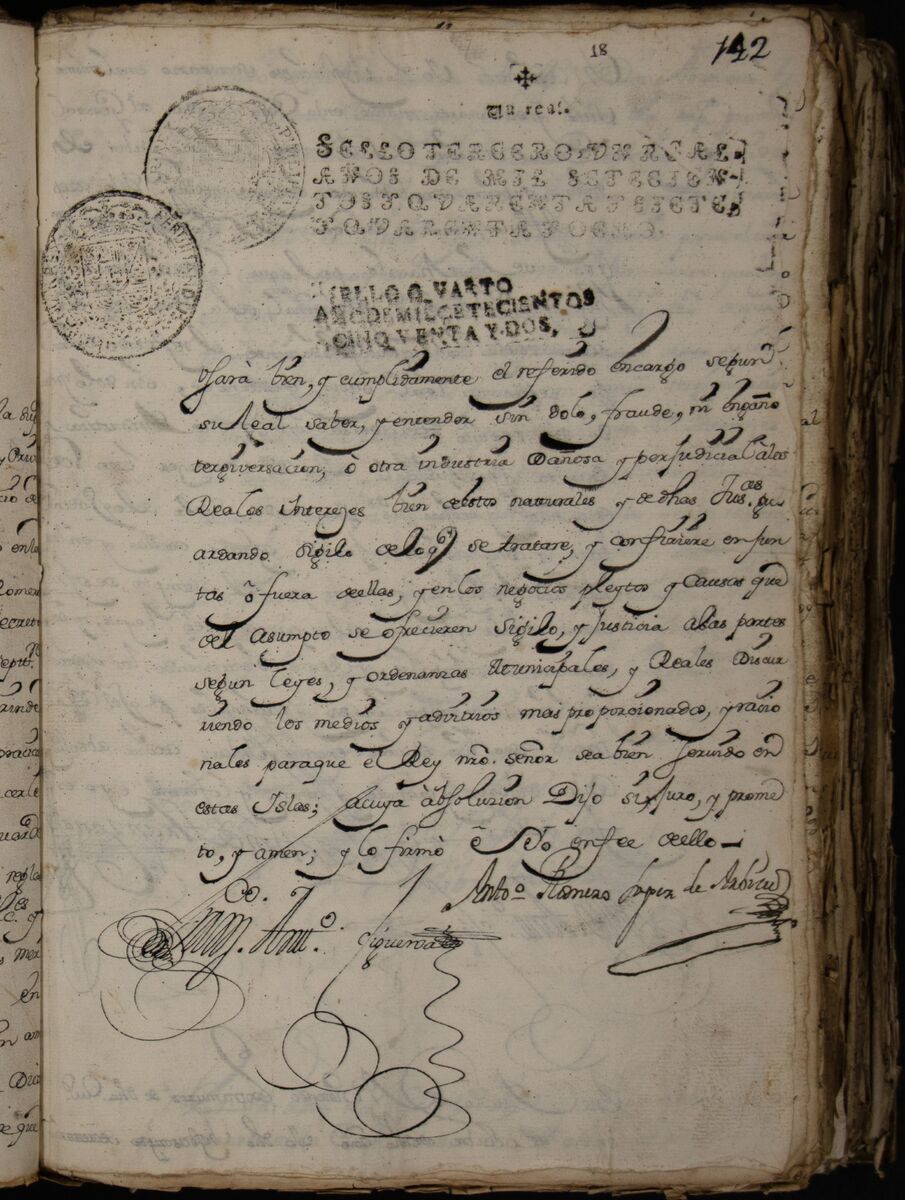 18
142
Un real.
SELLO TERCERO, VN REAL,
AÑOS DE MIL SETECIEN-
TOS Y QVARENTA Y SIETE,
Y QVARENTA Y OCHO.
SELLO QVARTO
AÑO DE MIL SETECIENTOS
CINQVENTA Y DOS,
Usarà bien, y cumplidamente el referido encargo segun
su Leal saber, y entender sin dolo, fraude, ni engaño
tergiversacion, ò otra industria Dañosa y perjudicial alos
Reales Intereses bien destos naturales y de dhas Jus.as gu
ardando sigilo delo q.e se tratare, y confiriere en jun
tas ò fuera deellas, y en los negocios pleytos y Causas que
del Asumpto se ofrecieren Sigilo, y Justicia alas partes
segun Leyes, y ordenanzas Municipales, y Reales Discur
riendo los medios y advitrios mas proporcionados, y racio
nales paraque el Rey nro. señor sea bien servido en
estas Islas; acuya àbsolucion Dijo si juro, y prome
to, y amen; y lo firmò ê Yo enfee deello
Anto.o Romero Lopez de Arbizu
Juan Ant.o Figueroa